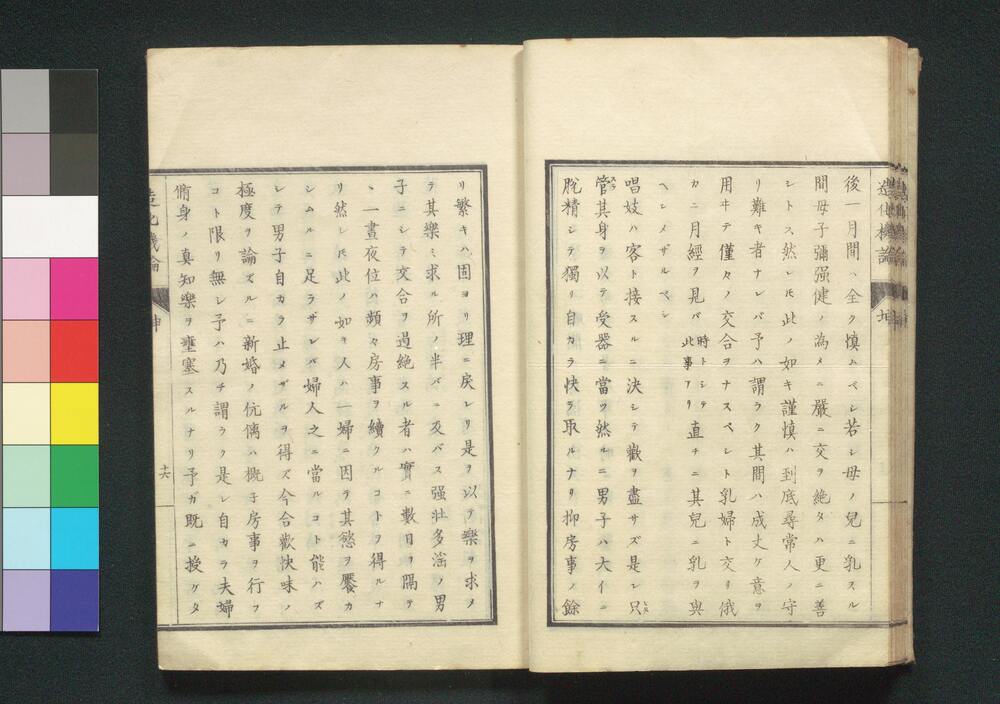 後一月間ハ全ク慎ムベシ若シ母ノ兒ニ乳スル
間母子彌强健ノ為メニ嚴ニ交ヲ絶タハ更ニ善
シトス然レ𪜈此ノ如キ謹慎ハ到底尋常人ノ守
リ難キ者ナレバ予ハ謂ラク其間ハ成丈ケ意ヲ
用ヰテ僅々ノ交合ヲナスベシト乳婦ト交リ俄
カニ月經ヲ見バ時トシテ此事アリ直チニ其兒ニ乳ヲ與
ヘシメザルベシ
唱妓ハ客ト接スルニ決シテ歡ヲ盡サズ是レ只
管其身ヲ以テ受器ニ當ツ然ルニ男子ハ大イニ
脫精シテ獨リ自カラ快ヲ取ルナリ抑房事ノ餘
リ繁キハ固ヨリ理ニ戾レリ是ヲ以テ樂ヲ求メ
テ其樂ミ求ル所ノ半バニ及バス强壯多淫ノ男
子ニシテ交合ヲ過絶スル者ハ實ニ數日ヲ隔テ
、一晝夜位ハ頻々房事ヲ續クルコトヲ得ルナ
リ然レ𪜈此ノ如キ人ハ一婦ニ因テ其慾ヲ饜カ
シムルニ足ラザレバ婦人之ニ當ルコト能ハズ
シテ男子自カラ止メザルヲ得ズ今合歡快味ノ
極度ヲ論ズルニ新婚ノ伉儷ハ概子房事ヲ行フ
コト限リ無シ予ハ乃チ謂ラク是レ自カラ夫婦
脩身ノ真知樂ヲ壅塞スルナリ予ガ既ニ授ケタ
造化機論
坤
十六